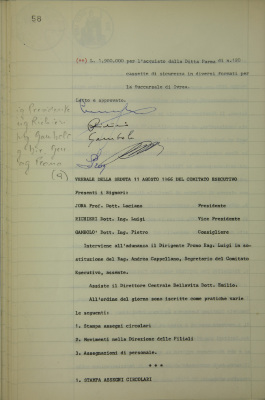 58
(==) L. 7.000.000 per l'acquisto dalla Ditta Parma di n.120
cassette di sicurezza in diversi formati per
la Succursale di Ivrea.
Letto e approvato.
VERBALE DELLA SEDUTA 11 AGOSTO 1966 DEL COMITATO ESECUTIVO
Presenti i Signori:
JONA Prof. Dott. Luciano Presidente
Dott. Ing. Luigi Vice Presidente
Dott. Ing. Pietro Consigliere
Interviene all'adunanza il Dirigente Tromo Rag. Luigi in so-
stituzione del Rag. Andrea Cappellano, Segretario del Comitato
Esecutivo, assente.
Assiste il Direttore Centrale Bellavita Dott. Emilio.
All'ordine del giorno sono iscritte come pratiche varie
le seguenti:
1. Stampa assegni circolari
2. Movimenti nella Direzione delle Filiali
3. Assegnazioni di personale.
* * *
1. STAMPA ASSEGNI CIRCOLARI